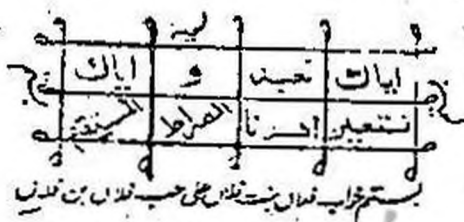 اياك نعبد و اياك
نستعين اهدنا الصراط المستقيم
بستم خواب فلان بنت فلان على حب فلان بن فلان